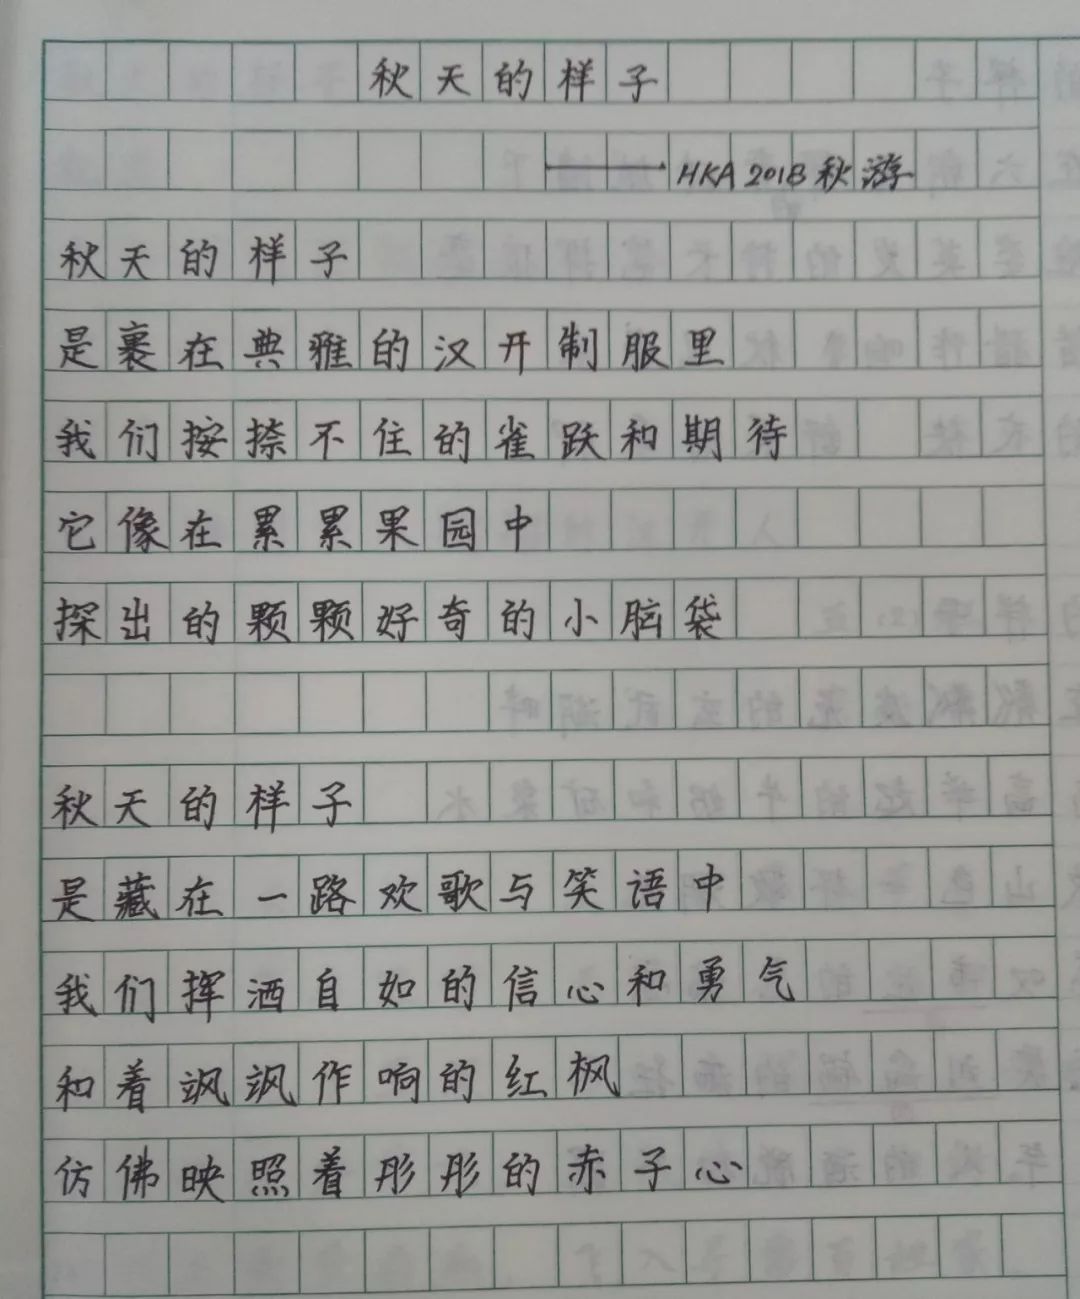 秋天的样子
——HKA 2018 秋游
秋天的样子
是裹在典雅的汉开制服里
我们按捺不住的雀跃和期待
它像在累累果园中
探出的颗颗好奇的小脑袋
秋天的样子
是藏在一路欢歌与笑语中
我们挥洒自如的信心和勇气
和着飒飒作响的红枫
仿佛映照着彤彤的赤子心